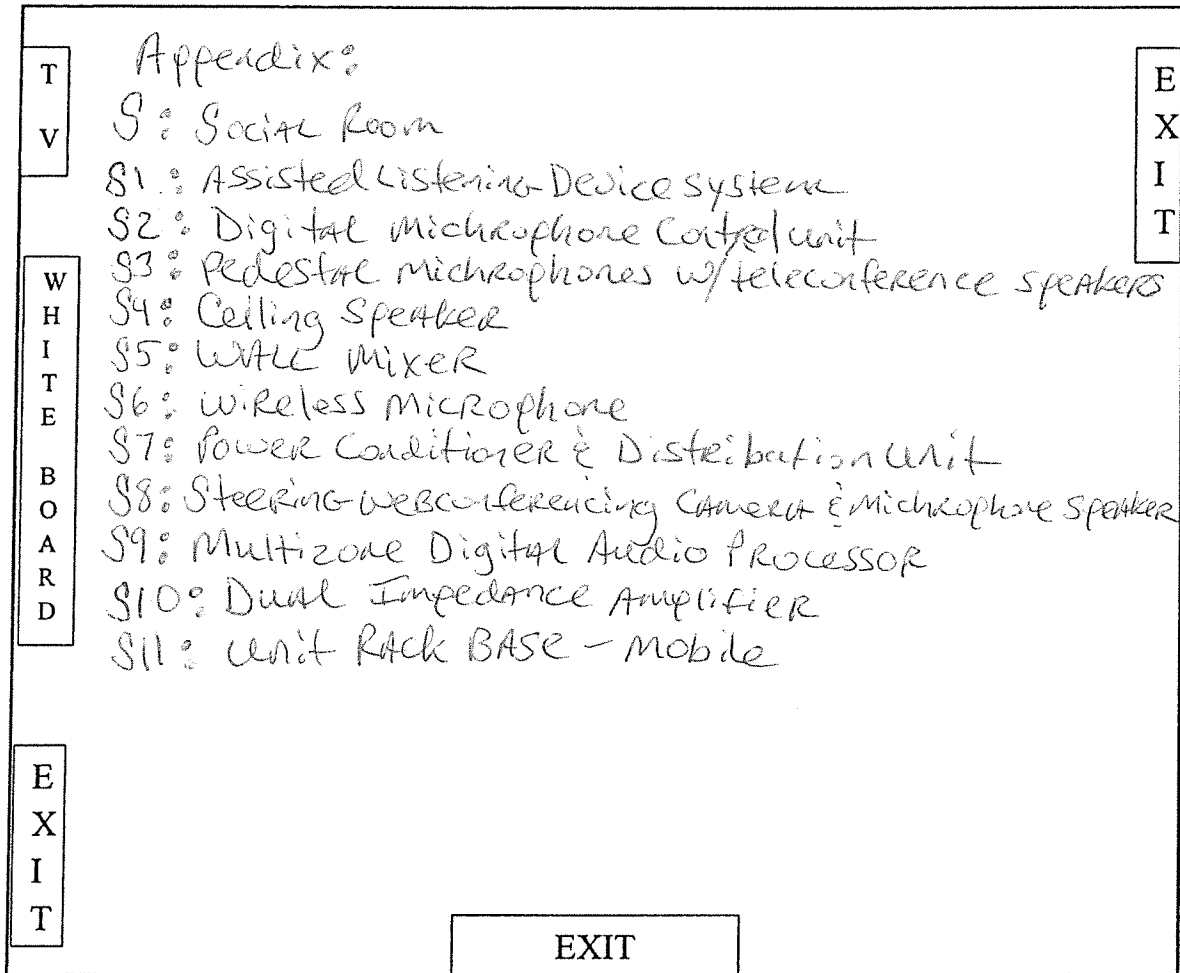 TV
Appendix:
EXIT
S: Social Room
S1: Assisted Listening Device system
S2: Digital Michrophone Control unit
S3: Pedestal Michrophones w/ teleconference speakers
WHITE BOARD
S4: Ceiling Speaker
S5: Wall Mixer
S6: Wireless Microphone
S7: Power Conditioner & Distribution Unit
S8: Steering webconferencing Camera & Michrophone Speaker
S9: Multizone Digital Audio Processor
S10: Dual Impedance Amplifier
S11: Unit Rack Base - Mobile
EXIT
EXIT